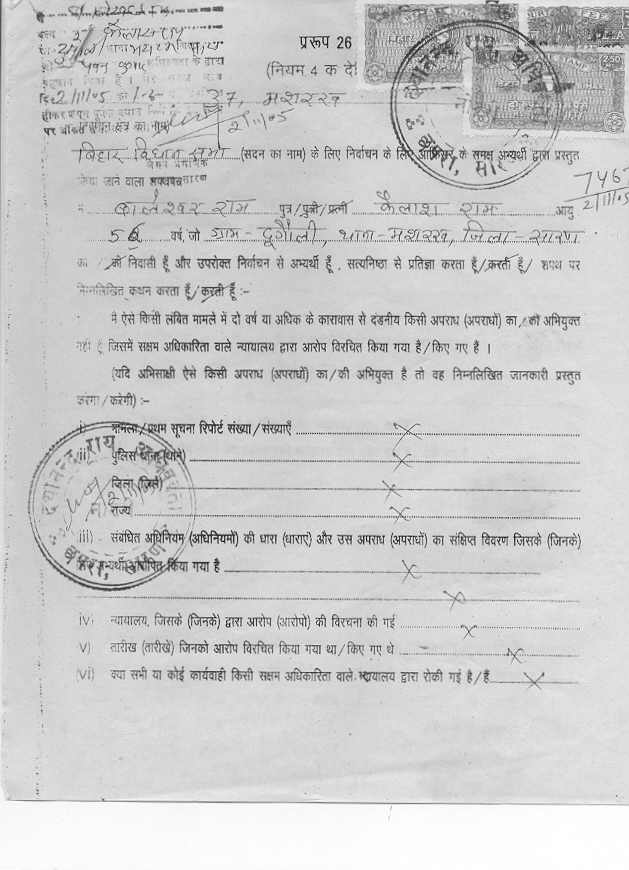 प्ररूप 26
(नियम 4 क दे
27, मशरख
2/11/05
पर
बिहार विधान सभा (सदन का नाम) के लिए निर्वाचन के लिए ऑफिसर के समक्ष अभ्यर्थी द्वारा प्रस्तुत
किया जाने वाला शपथपत्र
7467
2/11/05
मैं कालेश्वर राम पुत्र/पुत्री/पत्नी कैलाश राम आयु
56 वर्ष, जो ग्राम- दुर्गौली, थाना- मशरख, जिला- सारण
का / की निवासी हूँ और उपरोक्त निर्वाचन से अभ्यर्थी हूँ , सत्यनिष्ठा से प्रतिज्ञा करता हूँ/करती हूँ/ शपथ पर
निम्नलिखित कथन करता हूँ/करती हूँ :-
मै ऐसे किसी लंबित मामले में दो वर्ष या अधिक के कारावास से दंडनीय किसी अपराध (अपराधों) का/की अभियुक्त
नहीं हूँ जिसमें सक्षम अधिकारिता वाले न्यायालय द्वारा आरोप विरचित किया गया है/किए गए हैं ।
(यदि अभिसाक्षी ऐसे किसी अपराध (अपराधों) का/की अभियुक्त है तो वह निम्नलिखित जानकारी प्रस्तुत
करेगा/करेगी) :-
i मामला/प्रथम सूचना रिपोर्ट संख्या/संख्याएँ X
ii) पुलिस थाना (थाने) X
जिला (जिले) X
राज्य X
iii) - संबंधित अधिनियम (अधिनियमों) की धारा (धाराएं) और उस अपराध (अपराधों) का संक्षिप्त विवरण जिसके (जिनके)
लिए अभ्यर्थी आरोपित किया गया है X
X
iv) न्यायालय, जिसके (जिनके) द्वारा आरोप (आरोपो) की विरचना की गई X
v) तारीख (तारीखें) जिनको आरोप विरचित किया गया था/किए गए थे X
(vi) क्या सभी या कोई कार्यवाही किसी सक्षम अधिकारिता वाले न्यायालय द्वारा रोकी गई है/हैं X